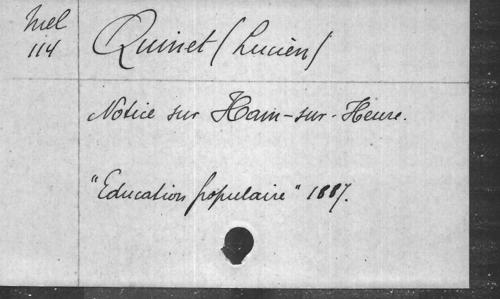 Mel
114
Quinet (Lucien)
Notice sur Ham-sur-Heure.
"Education populaire" 1887.